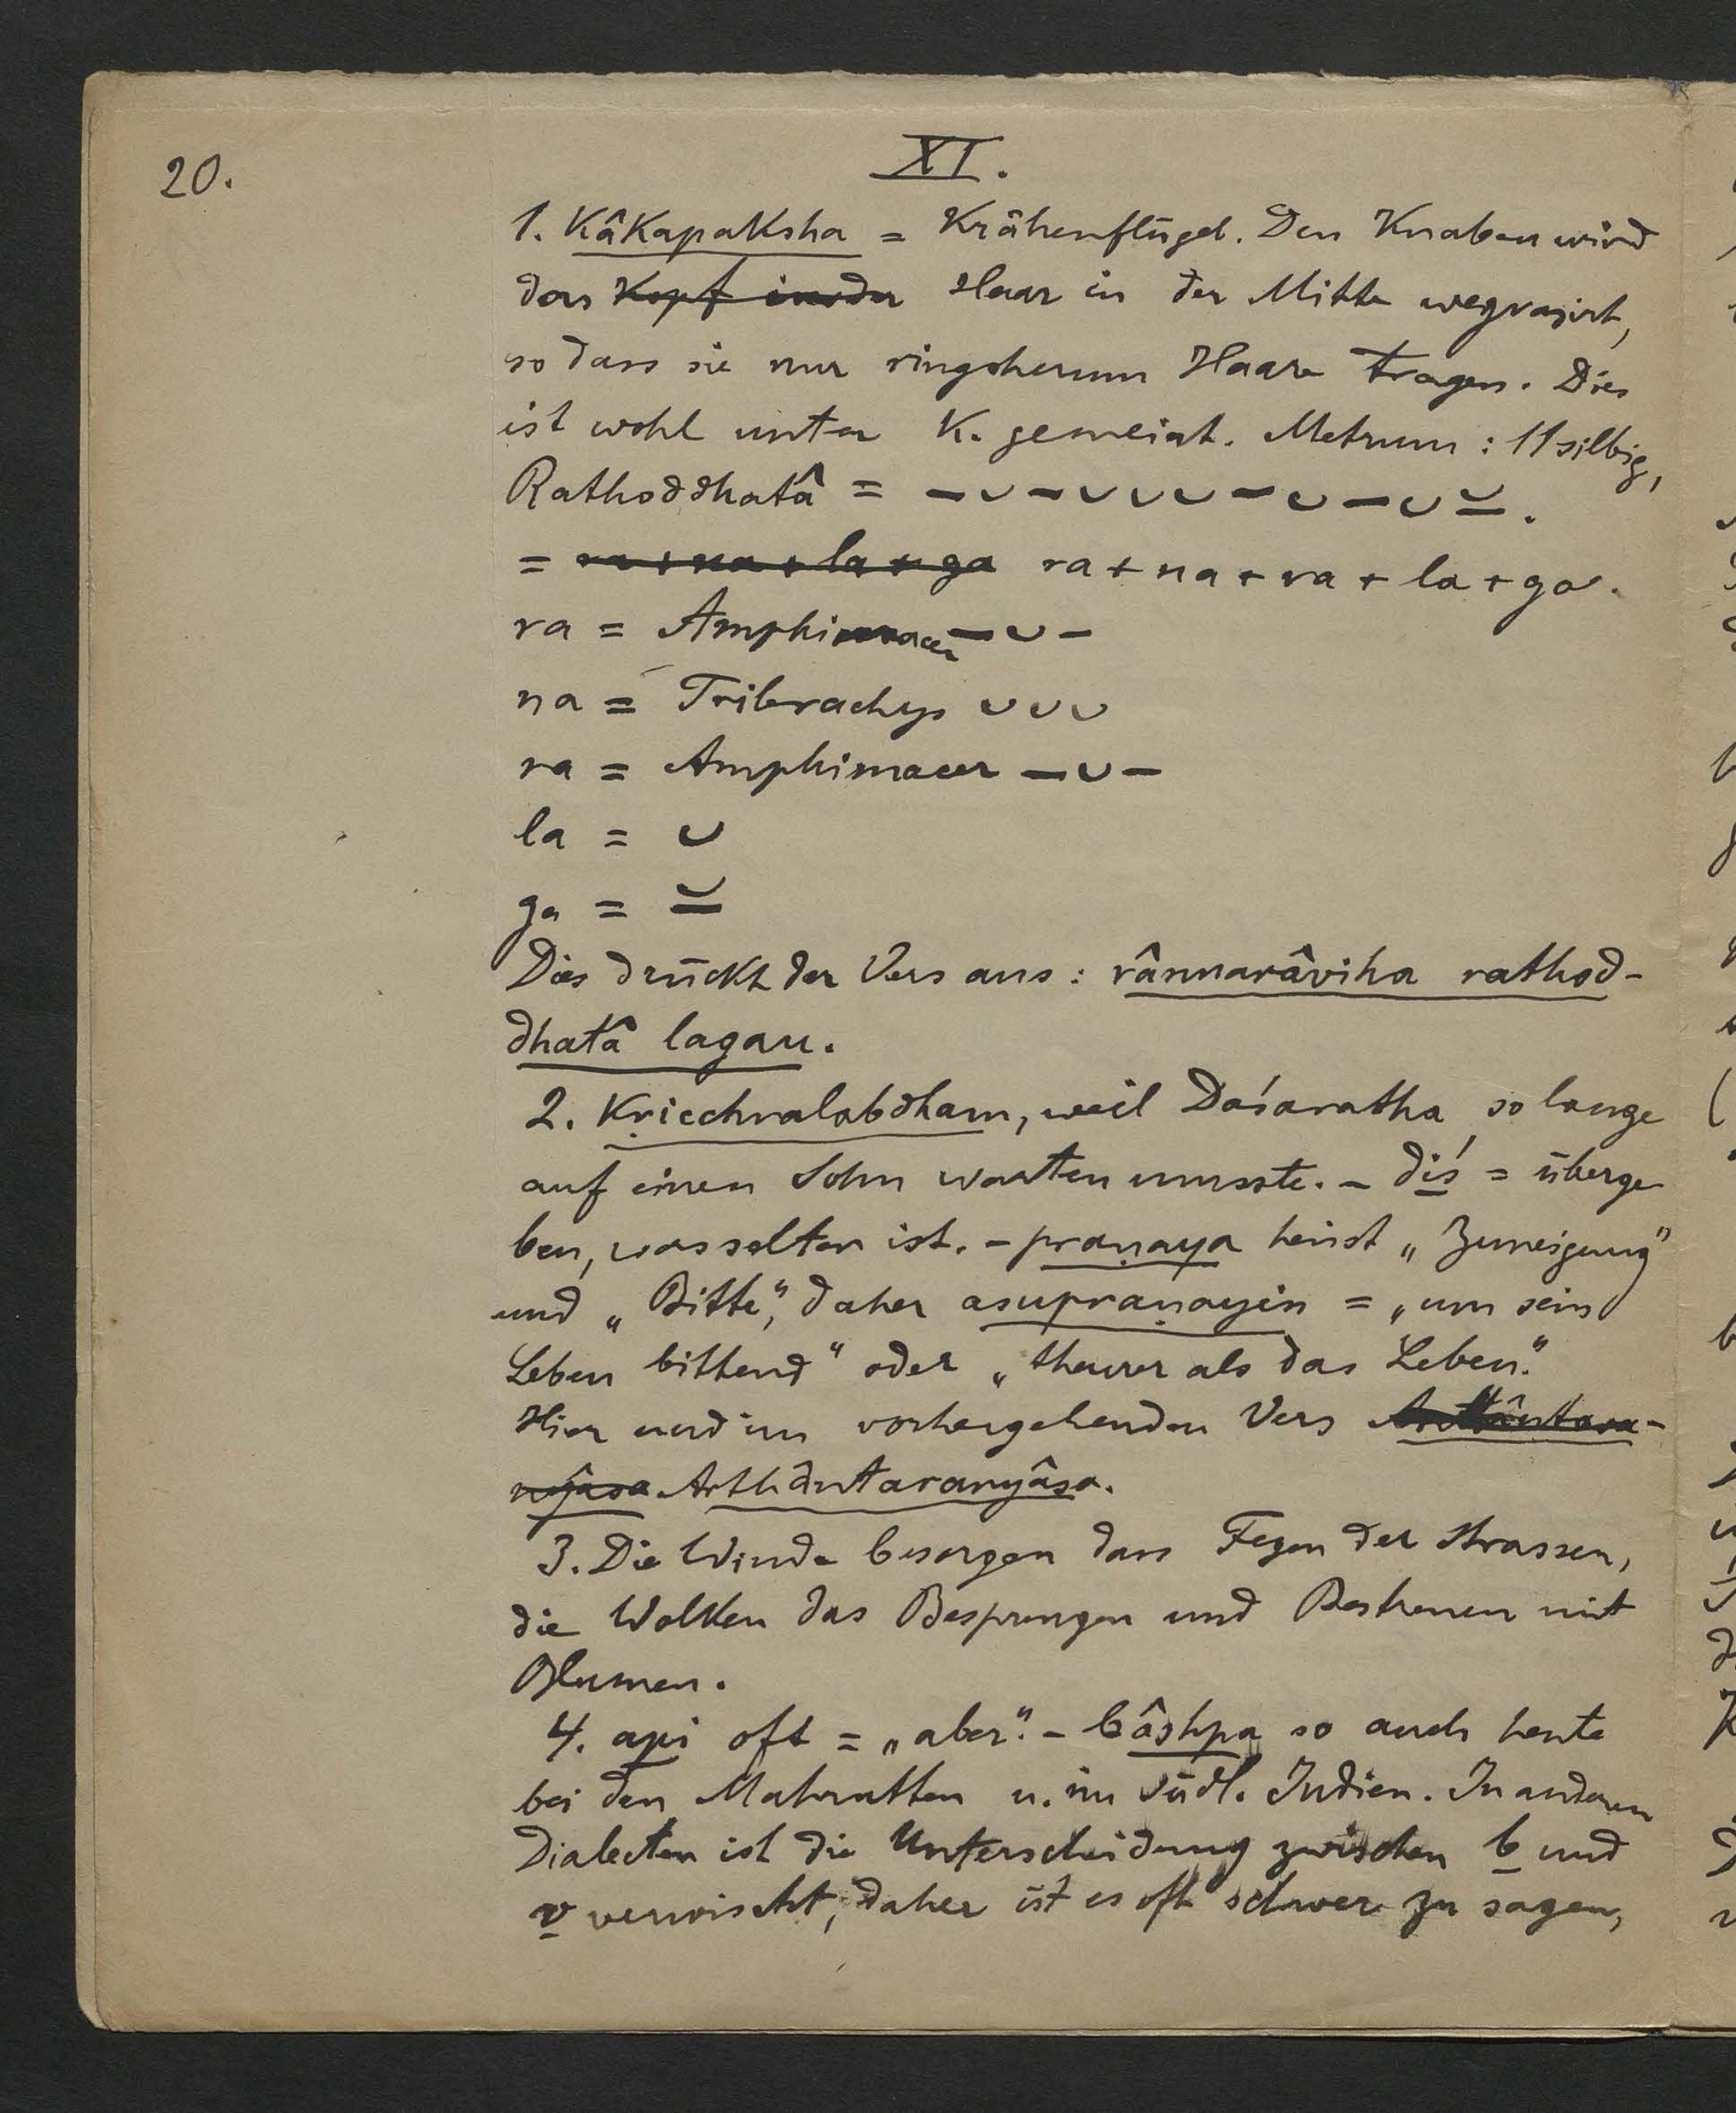 20.
XI.
1. Kâkapaksha = Krähenflügel. Den Knaben wird
das ~~Kopf in der~~ Haar in der Mitte wegrasirt,
so dass sie nur ringsherum Haare tragen. Dies
ist wohl unter K. gemeint. Metrum: 11 silbig,
Rathoddhatâ = – ⏑ – ⏑ ⏑ ⏑ – ⏑ – ⏑ ⏓.
= ~~ra + na + la + ga~~ ra + na + ra + la + ga.
ra = Amphimacer – ⏑ –
na = Tribrachys ⏑ ⏑ ⏑
ra = Amphimacer – ⏑ –
la = ⏑
ga = ⏓
Dies drückt der Vers aus: rânnarâviha rathod-
dhatâ lagau.
2. Kṛicchralabdham, weil Daśaratha so lange
auf einen Sohn warten musste. – diś = überge
ben, was selten ist. – praṇaya heisst „Zuneigung"
und „Bitte", daher asupraṇayin = „um sein
Leben bittend" oder „theurer als das Leben".
Hier und im vorhergehenden Vers ~~Arthântara-~~
~~nyâsa~~ Arthântaranyâsa.
3. Die Winde besorgen das Fegen der Strassen,
die Wolken das Besprengen und Bestreuen mit
Blumen.
4. api oft = „aber". – bâshpa so auch heute
bei den Mahratten u. im südl. Indien. In anderen
Dialecten ist die Unterscheidung zwischen b und
v verwischt, daher ist es oft schwer zu sagen,